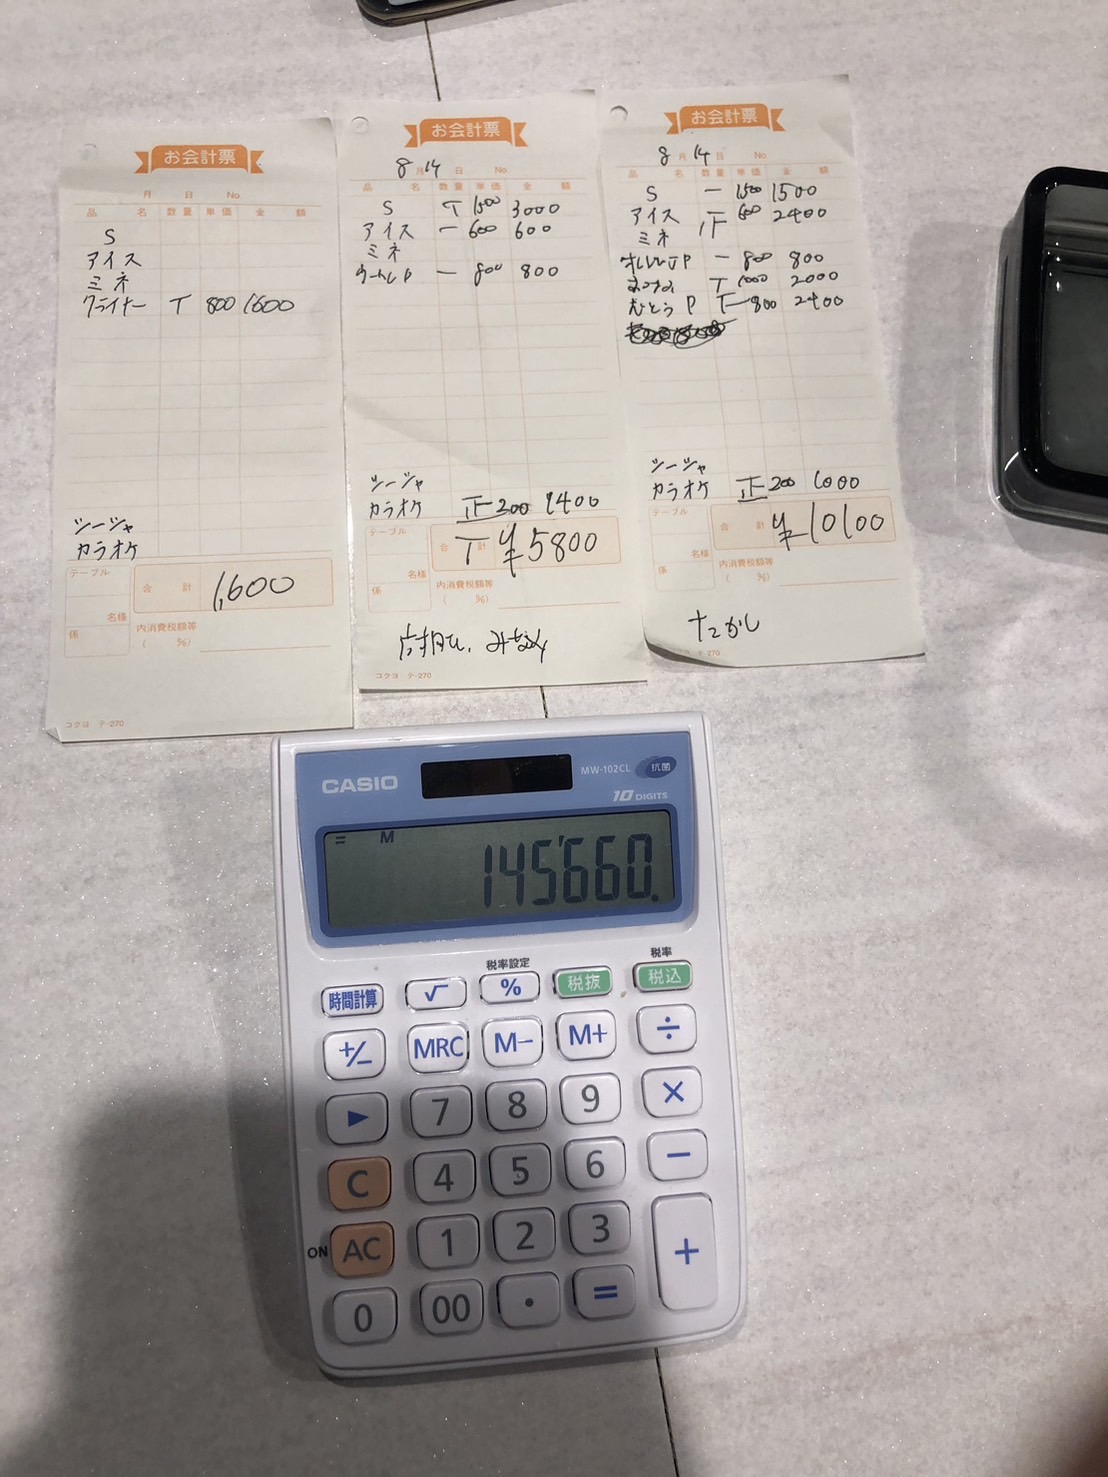 お会計票
月 日 No
品 名 数 量 単 価 金 額
S
アイス
ミネ
クライナー T 800 1600
シージャ
カラオケ
テーブル
合 計 1,600
名様
係
内消費税額等
( %)
コクヨ テ-270
お会計票
8月14日 No
品 名 数 量 単 価 金 額
S T 1500 3000
アイス 一 600 600
ミネ
一 800 800
シージャ
カラオケ 正T 200 1400
テーブル
合 計 ¥5800
名様
係
内消費税額等
( %)
コクヨ テ-270
お会計票
8月14日 No
品 名 数 量 単 価 金 額
S 一 1500 1500
アイス 600 2400
ミネ
一 800 800
T 1000 2000
P 800 2400
シージャ
カラオケ 正 200 1000
テーブル
合 計 ¥10100
名様
係
内消費税額等
( %)
たかし
テ-270
CASIO
MW-102CL 抗菌
10 DIGITS
= M
145'660.
税率設定 税率
時間計算 √ % 税抜 税込
+/− MRC M− M+ ÷
▶ 7 8 9 ×
C 4 5 6 −
ON AC 1 2 3 +
0 00 . =